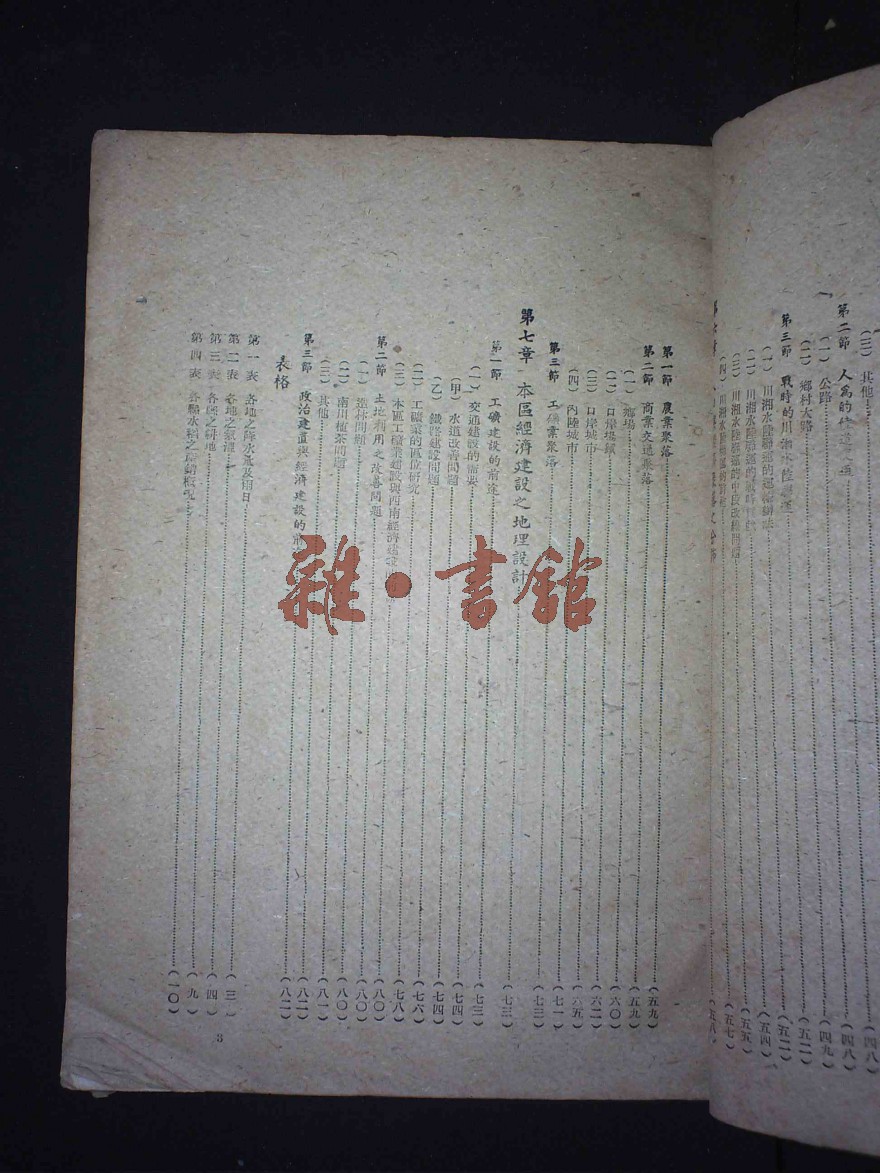 (三)其他……(四八)
第二節 人爲的……(四八)
(一)公路……(四九)
(二)鄉村大路……(五二)
第三節 戰時的川湘水陸……(五二)
(一)川湘水陸聯運的運輸……(五四)
(二)川湘水陸聯運的……(五五)
(三)川湘水陸聯運的……(五七)
……(五八)
第一節 農業聚落……(五九)
第二節 商業交通聚落……(五九)
(一)鄉場……(六〇)
(二)口岸場鎮……(六二)
(三)口岸城市……(六五)
(四)內陸城市……(七一)
第三節 工礦業聚落……(七三)
第七章 本區經濟建設之地理設計……(七三)
第一節 工礦建設的前途……(七三)
(一)交通建設的需要……(七四)
(甲)水道改善問題……(七四)
(乙)鐵路建設問題……(七六)
(二)工礦業的區位研究……(七八)
(三)本區工礦業建設與西南經濟建……(八〇)
第二節 土地利用之改善問題……(八〇)
(一)造林問題……(八〇)
(二)南川植茶問題……(八一)
(三)其他……(八二)
第三節 政治建置與經濟建設的……(八二)
表格
第一表 各地之降水量及雨日……(三)
第二表 各地之氣溫……(四)
第三表 各縣之耕地……(九)
第四表 各縣水稻之產銷概況……(一〇)
3
雜·書館